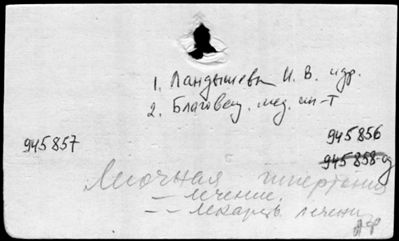 1. Ландышева И. В. и др.
2. Благовещ. мед. ин-т
945856
945857
945858
Легочная гипертения
- лечение.
- - лекарств. лечени